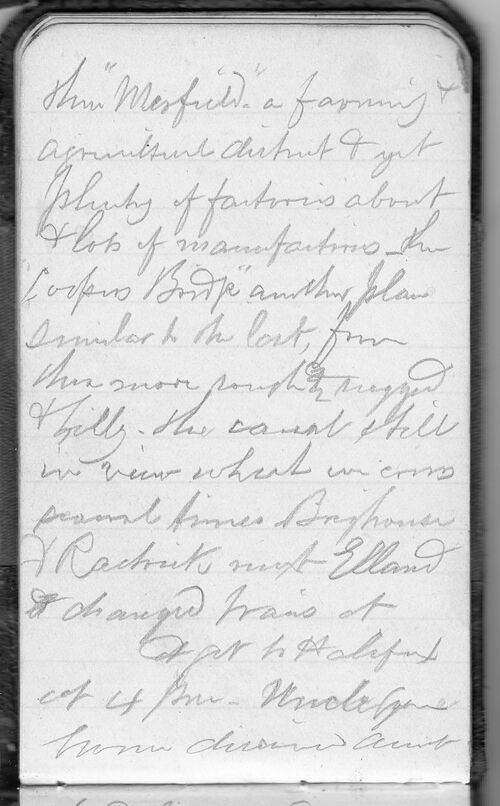 then "Merfield" a farming &
agricultural district & yet
plenty of factories about
& lots of manufactories - then
"Coopers Bridge" another place
similar to the last, from
this more rough & rugged
& hilly - the canal still
in view which we cross
several times Brighouse
& Rastrick next Elland
& changed trains at
& get to Halifax
at 4 pm - Uncle
home Aunt